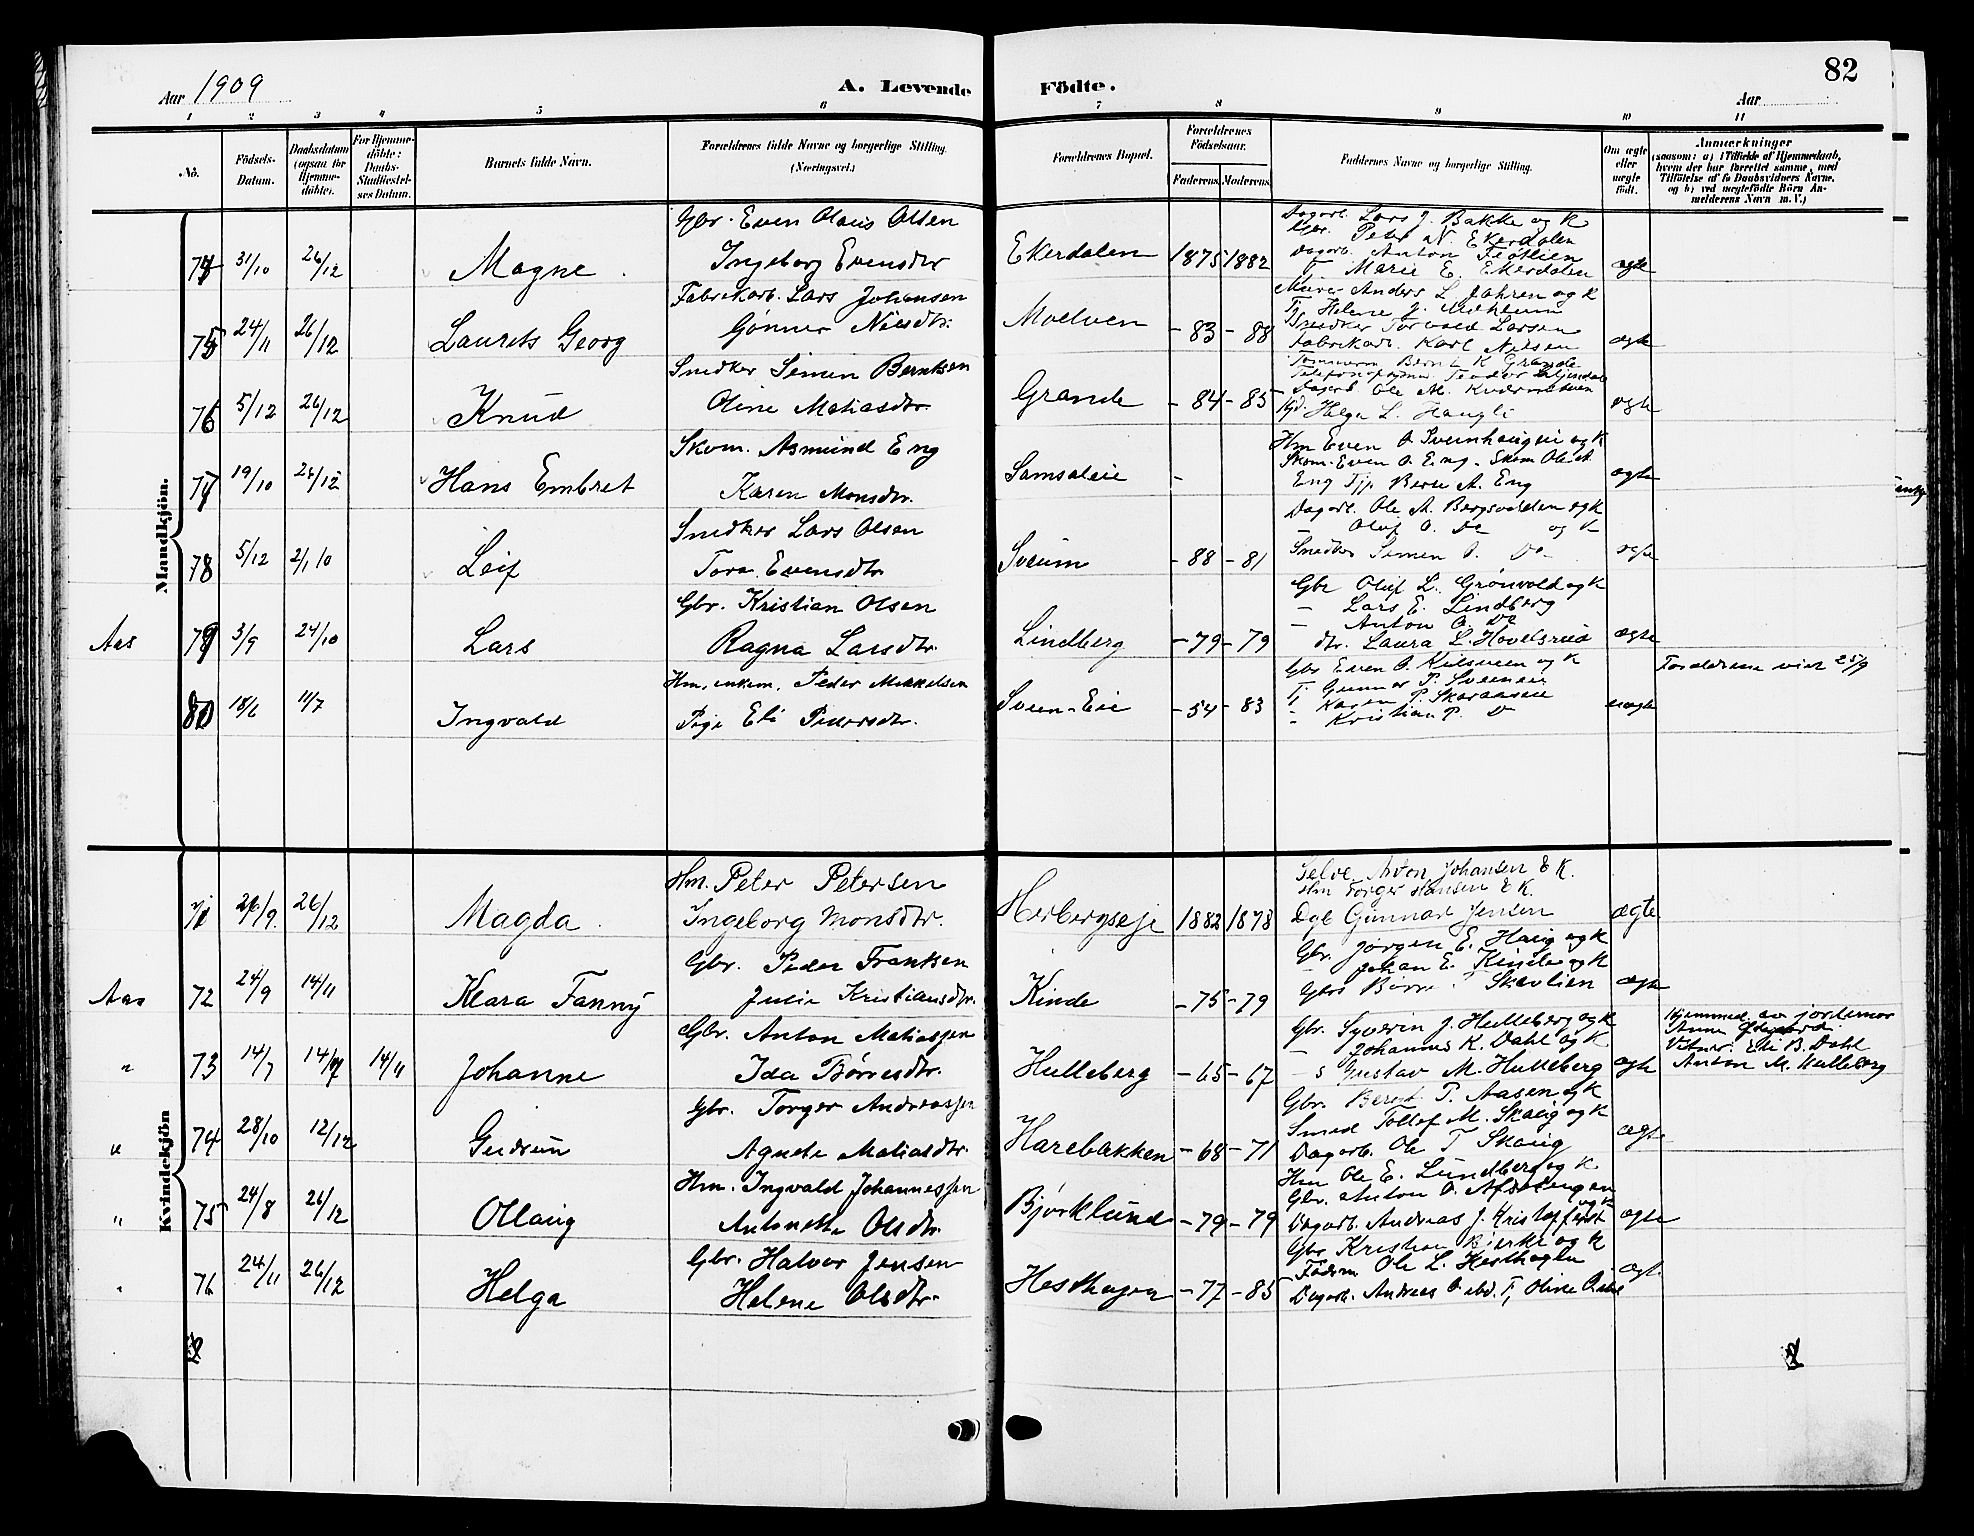 Aar 1909
A. Levende Födte.
82
Aar
1 2 3 4 5 6 7 8 9 10 11
No.
Födsels-Datum.
Daabsdatum (ogsaa for Hjemmedöbte).
For Hjemmedöbte: Daabs-Stadfæstelses Datum.
Barnets fulde Navn.
Forældrenes fulde Navne og borgerlige Stilling. (Næringsvei.)
Forældrenes Bopæl.
Forældrenes Födselsaar.
Faderens. Moderens.
Faddernes Navne og borgerlige Stilling.
Om ægte eller uægte födt.
Anmærkninger
(saasom: a) i Tilfælde af Hjemmedaab, hvem der har forrettet samme, med Tilföielse af to Daabsvidners Navne, og b) ved uægtefödte Börn Anmelderens Navn m.V.)
Mandkjön.
74 31/10 26/12 Magne
Gbr. Even Olaus Olsen
Ingeborg Evensdtr
Ekerdalen 1875 1882
Dagarb. Lars J. Bakke og K
Gbr. Peter N. Ekerdalen
Dagarb. Anton
Marie E. Ekerdalen
ægte
75 24/11 26/12 Laurits Georg
Fabrikarb. Lars Johansen
Gønner Nilsdtr.
Moelven - 83 - 88
Murer Anders L. Jahren og K
Snedker Torvald Larsen
Fabrikarb. Karl Nilsen
ægte
76 5/12 26/12 Knud
Snedker Simen Berntsen
Oline Matiasdtr.
Grande - 84 - 85
Dagarb Ole M.
Helga L. Haugli
ægte
77 19/10 26/12 Hans Embret
Skom. Asmund Eng
Karen Monsdtr.
-
Hm Even O. Sveinhaugen og K
Skom. Even O. Eng. Skom Ole A
Eng Tjp. Berte A. Eng
ægte
78 5/12 2/1 10 Leif
Snedker Lars Olsen
Tora Evensdtr
Sveum - 88 - 81
Dagarb. Ole A. Bergsodden og K
Oluf O. Do og K
Snedker Simen O. Do
ægte
Aas 79 3/9 24/10 Lars
Gbr. Kristian Olsen
Ragna Larsdtr.
Lindberg - 79 - 79
Gbr Oluf L. Grønvold og K
- Lars E. Lindberg
- Anton O. Do
dtr. Laura L. Hovelsrud
ægte
80 18/6 11/7 Ingvald
Hm. enkem. Peder Mikkelsen
Pige Eli Pedersdtr.
Sveen-Eie - 54 - 83
Gbr Even O. Kilsveen og K
T. Gunnar P. Sveeneie
Karen P.
- Kristian P. Do
uægte
Forældrene viet 25/9
Kvindekjön
71 26/9. 26/12 Magda
Hm. Peter Petersen
Ingeborg Monsdtr.
Herbergseje 1882 1878
Selve. Anton Johansen & K.
Hm Torger Hansen & K.
Dgl Gunnar Jensen
ægte
Aas 72 24/9 14/11 Klara Fanny
Gbr. Peder Frantsen
Julie Kristiansdtr.
Kinde - 75 - 79
Gbr. Jørgen E. Haug og K
- Johan E. Kinde og K
Skavlien
ægte
" 73 14/7 14/7 14/11 Johanne
Gbr. Anton Matiassen
Ida Børresdtr.
Hulleberg - 65 - 67
Gbr. Syverin J. Hulleberg og K
- Johannes K. Dahl og K
- s Gustav M. Hulleberg
ægte
Hjemmed. av jordemor
Anne
Vidner. Eli B. Dahl
Anton M. Hulleberg
" 74 28/10 12/12 Gudrun
Gbr. Torger Andreassen
Agnete Matiasdtr.
Harebakken - 68 - 71
Gbr. Bernt P. Aasen og K
Smed Tollef M. Skaug og K
Dagarb. Ole T Skaug
ægte
" 75 24/8 26/12 Ollaug
Hm. Ingvald Johannessen
Antonette Olsdtr.
Bjørklund - 79 - 79
Hm Ole E. Lundberg og K
Gbr. Anton O.
og K
Dagarb. Andreas J.
ægte
" 76 24/11 26/12 Helga
Gbr. Halvor Jensen
Helene Olsdtr.
Hesthagen - 77 - 85
Gbr Kristian Bjerke og K
Ole L. Hesthagen
Dagarb. Andreas O. ebd. T, Oline
ægte